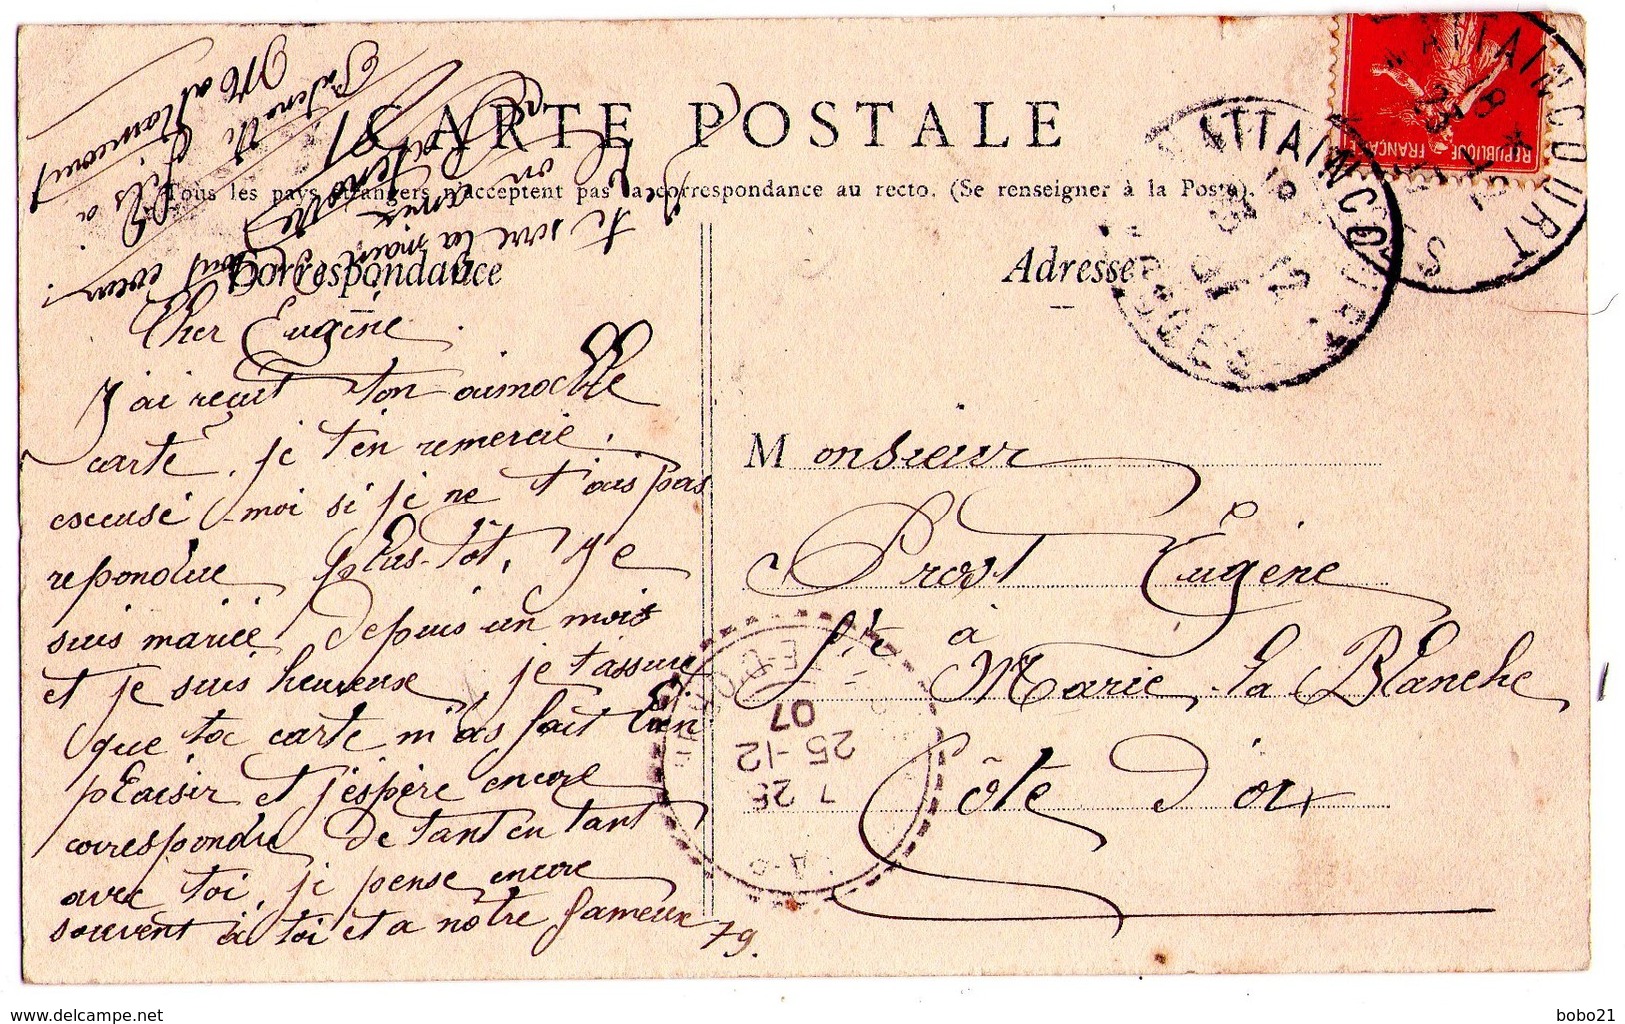 CARTE POSTALE
Tous les pays étrangers n'acceptent pas la correspondance au recto. (Se renseigner à la Poste).
Correspondance
Adresse
Cher Eugène
J'ai recuit ton aimable
carte, je t'en remercie,
excuse-moi si je ne t'ais pas
repondue plus-tôt, je
suis mariée depuis un mois
et je suis heureuse, je t'assure
que ta carte m'as fait bien
plaisir et j'éspère encore
correspondre de tant en tant
avec toi, je pense encore
souvent à toi et a nôtre fameux
79.
te serre la main
tout cœur
Fils à
Mattaincourt
Monsieur
Prost Eugène
à
Marie-la Blanche
Côte d'or
REPUBLIQUE FRANCAISE
MATTAINCOURT
VOSGES
7 25
25-12
07
www.delcampe.net
bobo21